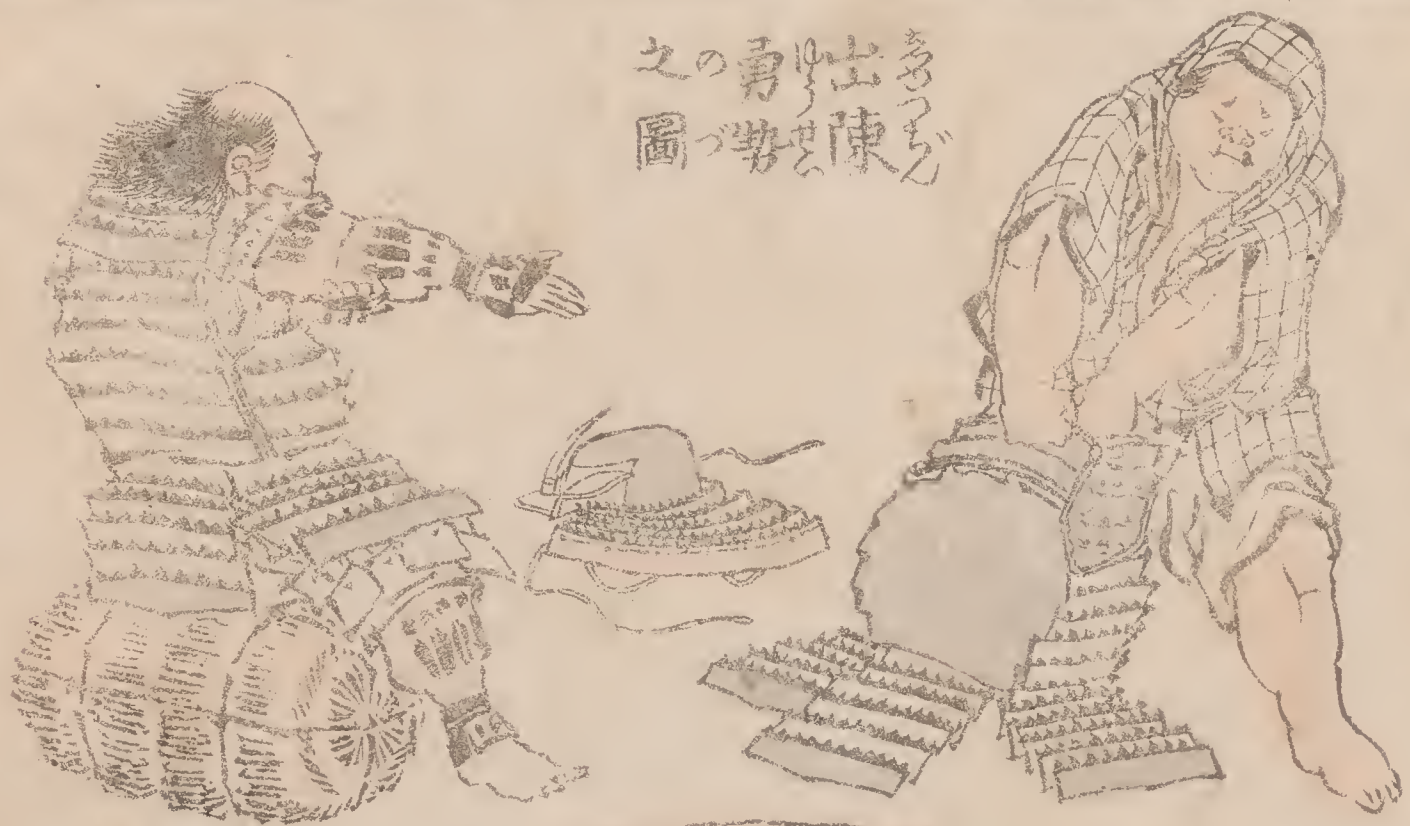 しゆつぢん
出陳
ゆうせい
勇勢
のづ
之圖